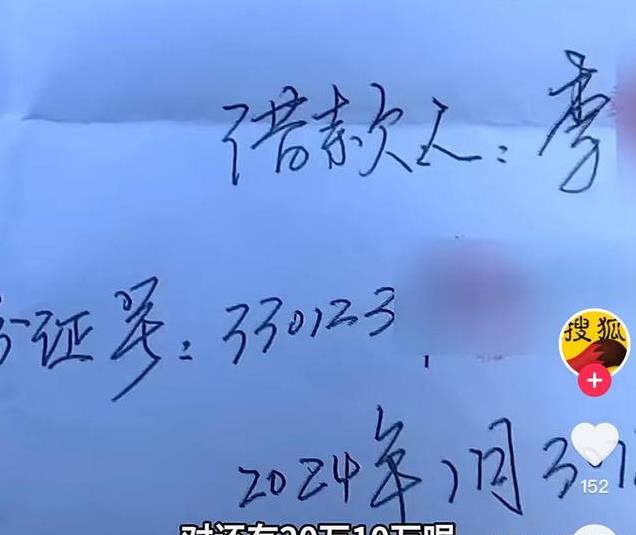 借款人:李
证号:330123
搜狐
2024年1月3
152
对还有20万10万呢